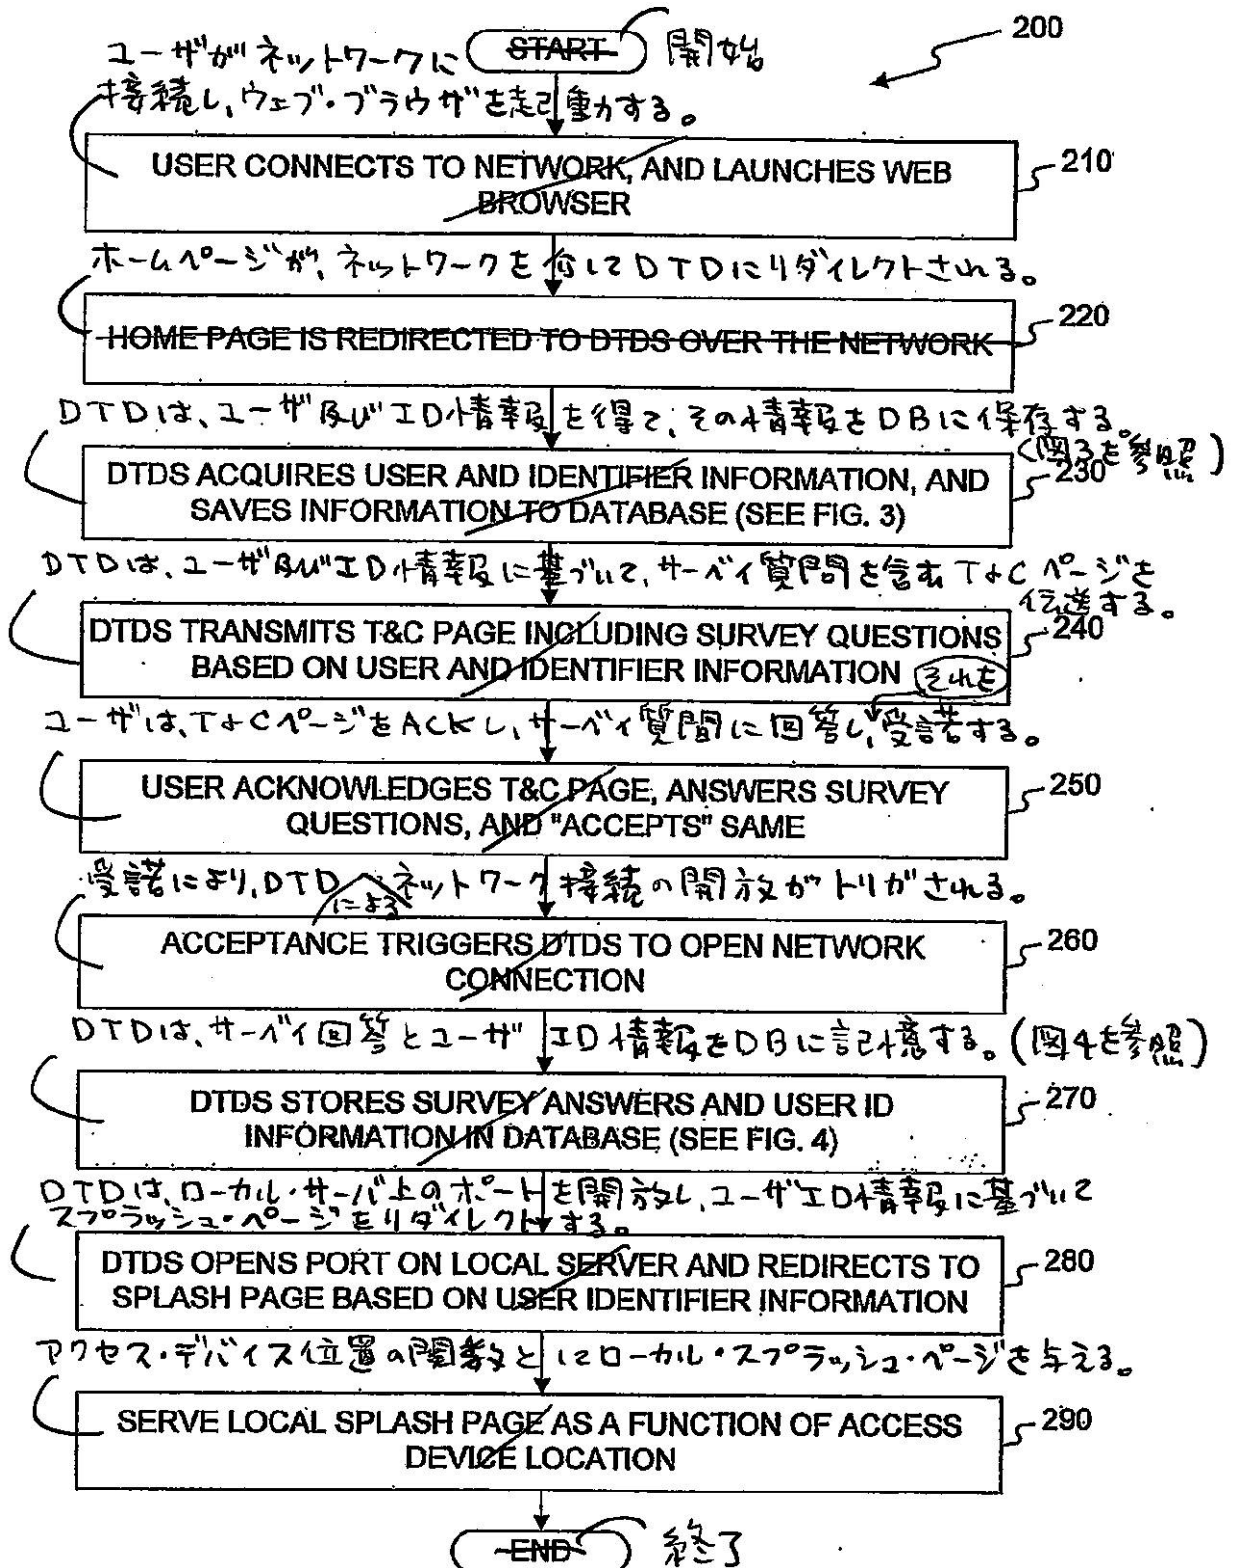 200
START 開始
ユーザがネットワークに
接続し、ウェブ・ブラウザを起動する。
USER CONNECTS TO NETWORK, AND LAUNCHES WEB
BROWSER
210
ホームページが、ネットワークを介してDTDにリダイレクトされる。
HOME PAGE IS REDIRECTED TO DTDS OVER THE NETWORK
220
DTDは、ユーザ及びID情報を得て、その情報をDBに保存する。
(図3を参照)
DTDS ACQUIRES USER AND IDENTIFIER INFORMATION, AND
SAVES INFORMATION TO DATABASE (SEE FIG. 3)
230
DTDは、ユーザ及びID情報に基づいて、サーベイ質問を含むT&Cページを
伝送する。
DTDS TRANSMITS T&C PAGE INCLUDING SURVEY QUESTIONS
BASED ON USER AND IDENTIFIER INFORMATION
240
それを
ユーザは、T&CページをACKし、サーベイ質問に回答し、受諾する。
USER ACKNOWLEDGES T&C PAGE, ANSWERS SURVEY
QUESTIONS, AND "ACCEPTS" SAME
250
受諾により、DTDネットワーク接続の開放がトリガされる。
による
ACCEPTANCE TRIGGERS DTDS TO OPEN NETWORK
CONNECTION
260
DTDは、サーベイ回答とユーザID情報をDBに記憶する。(図4を参照)
DTDS STORES SURVEY ANSWERS AND USER ID
INFORMATION IN DATABASE (SEE FIG. 4)
270
DTDは、ローカル・サーバ上のポートを開放し、ユーザID情報に基づいて
スプラッシュ・ページをリダイレクトする。
DTDS OPENS PORT ON LOCAL SERVER AND REDIRECTS TO
SPLASH PAGE BASED ON USER IDENTIFIER INFORMATION
280
アクセス・デバイス位置の関数とにローカル・スプラッシュ・ページを与える。
SERVE LOCAL SPLASH PAGE AS A FUNCTION OF ACCESS
DEVICE LOCATION
290
END 終了